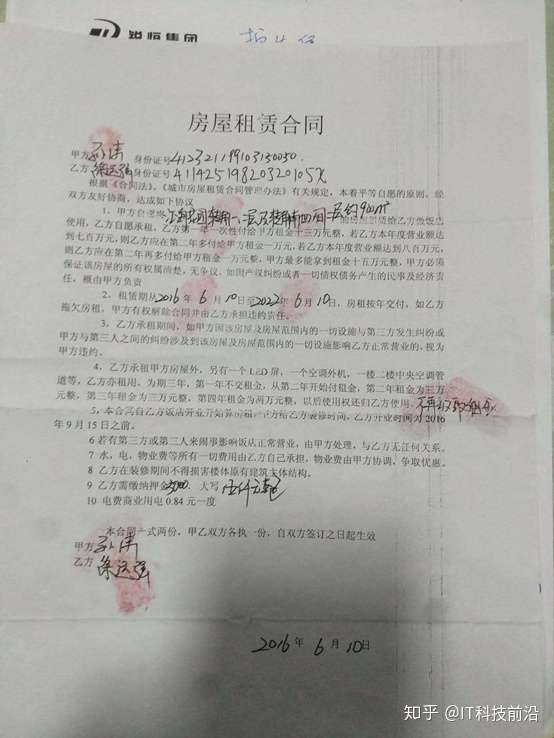 集团
房屋租赁合同
甲方 身份证号
乙方 身份证号
根据《合同法》、《城市房屋租赁合同管理办法》有关规定，本着平等自愿的原则，经
双方友好协商，达成如下协议
1、甲方自愿将
使用，乙方自愿承租，乙方第一年一次性付给甲方租金十三万元整，若乙方本年度营业额达
到七百万元，则乙方应在第二年多付给甲方租金一万元，若乙方本年度营业额达到八百万元，
则乙方应在第二年再多付给甲方租金一万元整，甲方最多能拿到租金十五万元整，甲方必须
保证该房屋的所有权属清楚，无争议，如因产权纠纷或者一切债权债务产生的民事及经济责
任，概由甲方负责
2、租赁期从2016年6月10日至2022年6月10日，房租按年交付，如乙方
拖欠房租，甲方有权解除合同并由乙方承担违约责任。
3、乙方承租期间，如甲方因该房屋及房屋范围内的一切设施与第三方发生纠纷或
甲方与第三人之间的纠纷涉及到该房屋及房屋范围内的一切设施影响乙方正常营业的，视为
甲方违约。
4、乙方承租甲方房屋外，另有一个LED屏，一个空调外机，一楼二楼中央空调管
道等，乙方亦租用，为期三年，第一年不交租金，从第二年开始付租金，第二年租金为三万
元整，第三年租金为三万元整，第四年租金为两万元整，以后使用权还归乙方使用，
5、本合同自乙方饭店开业开始算房租，甲方给乙方装修时间，乙方开业时间为2016
年9月15日之前。
6 若有第三方或第三人来闹事影响饭店正常营业，由甲方处理，与乙方无任何关系。
7 水，电，物业费等所有一切费用由乙方自己承担，物业费由甲方协调，争取优惠。
8 乙方在装修期间不得损害楼体原有建筑主体结构。
9 乙方需缴纳押金5000 大写
10 电费商业用电 0.84 元一度
本合同一式两份，甲乙双方各执一份，自双方签订之日起生效
甲方
乙方
2016年6月10日
知乎 @IT科技前沿